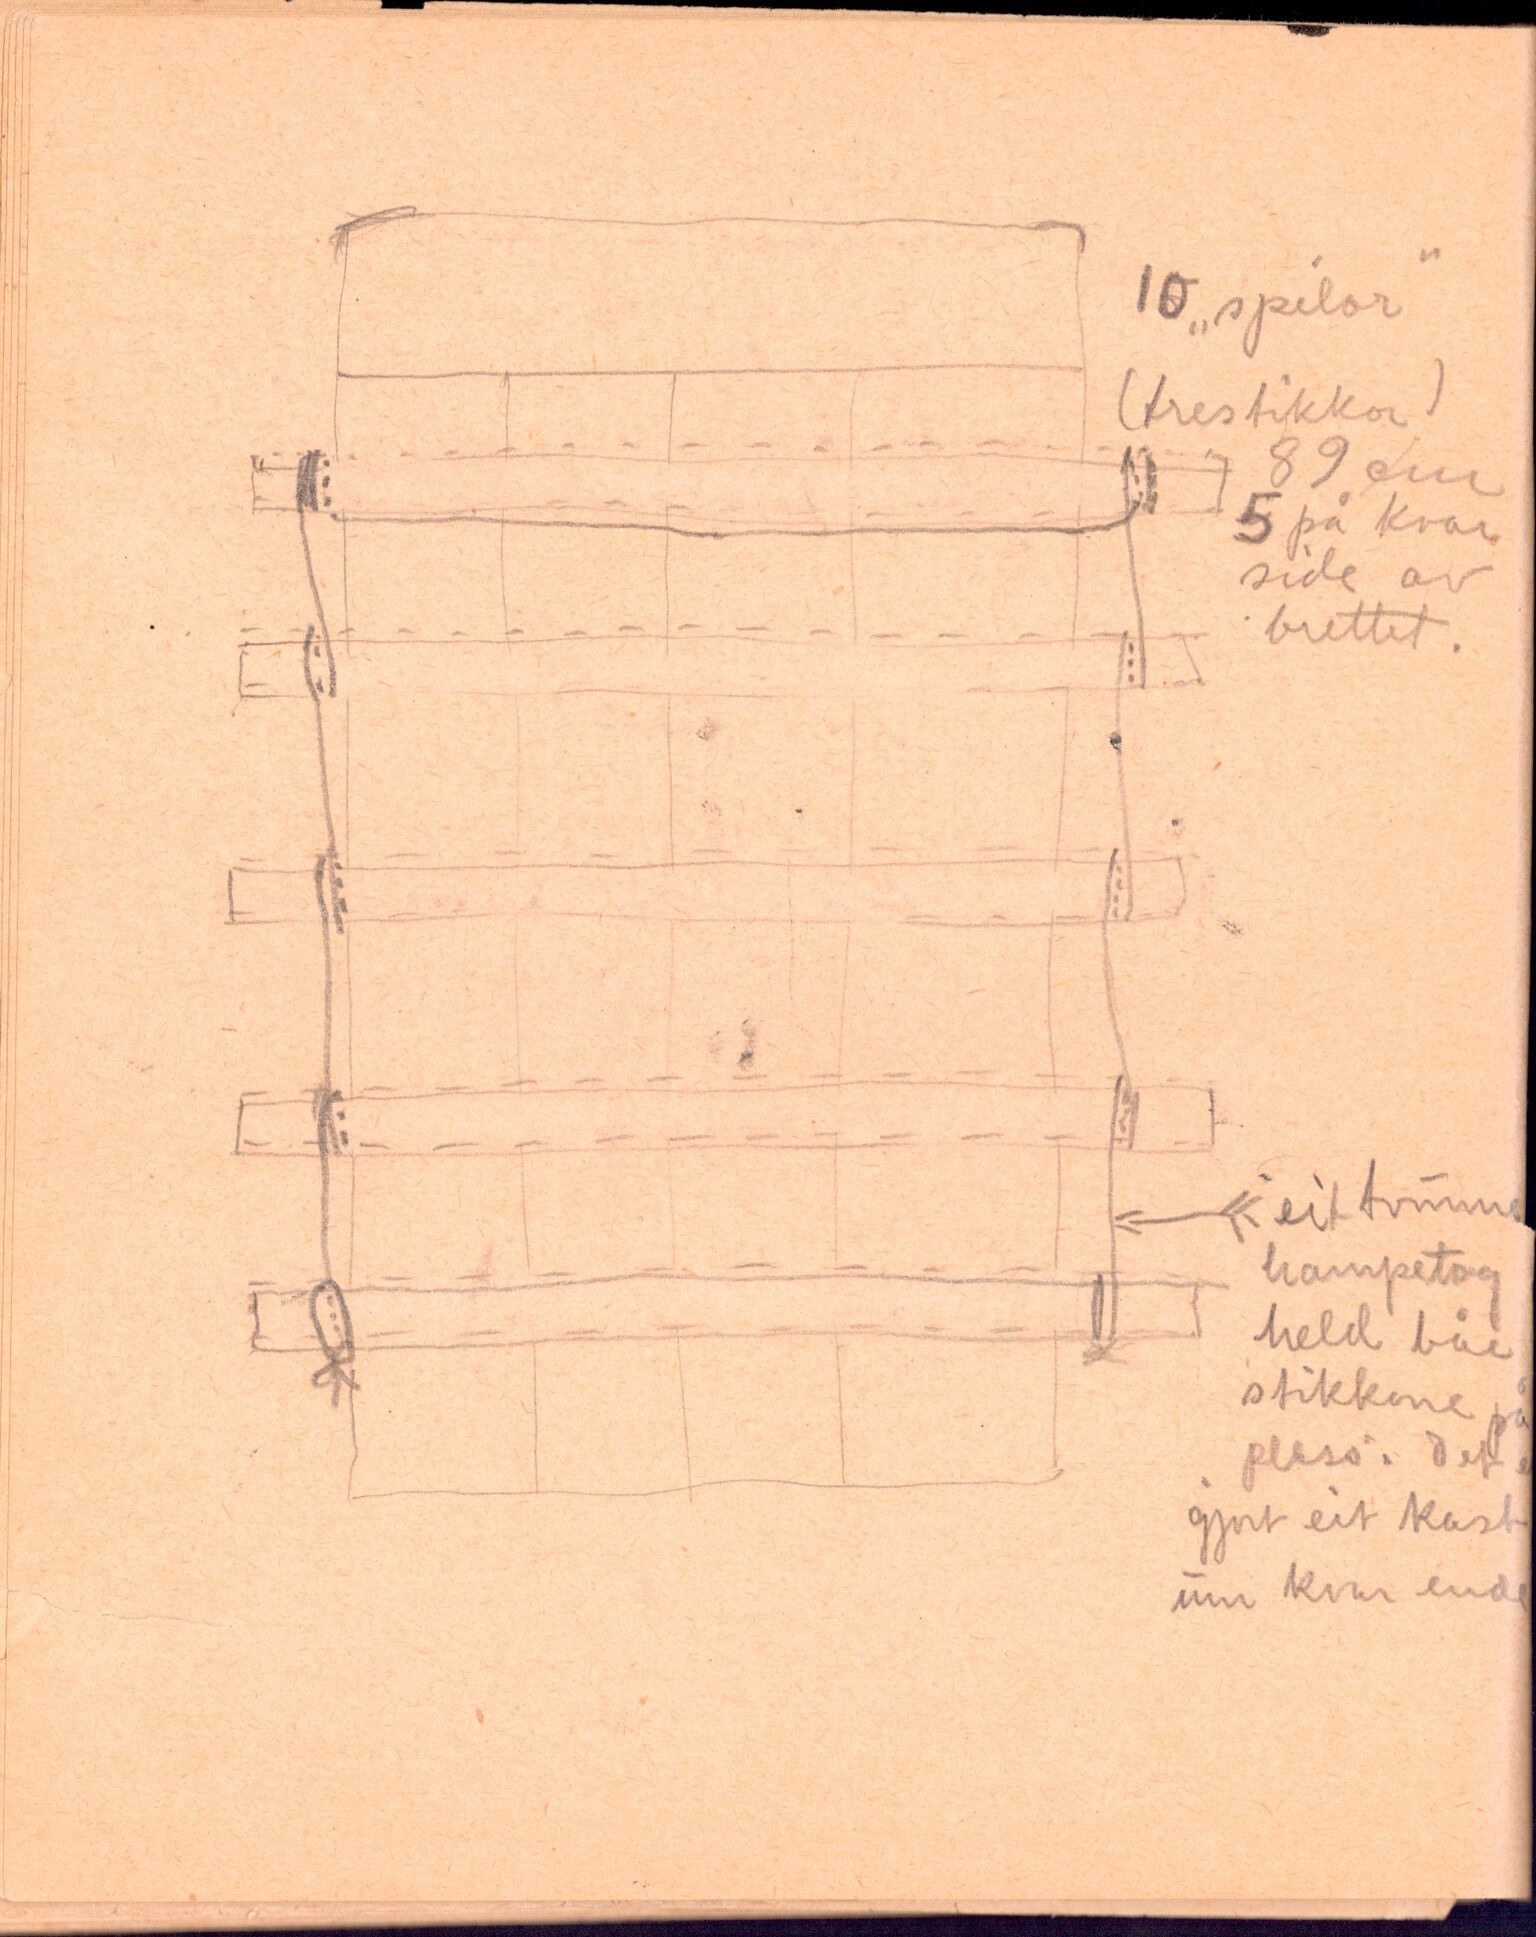 10 „spilor"
(trestikkor)
89 cm
5 på kvar
side av
brettet.
eit
hampetog
held båe
stikkone på
plass. Det e
gjort eit kast
um kvar ende